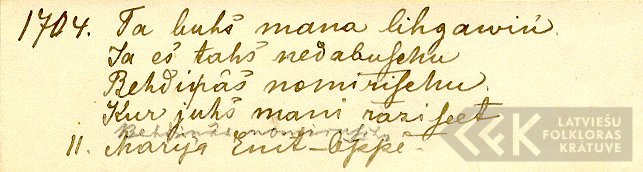 1704. Ta buhs mana lihgawiņ
Ja es tahs nedabuschu
Behdinâs nomirischu.
Kur juhs mani raziseet
Behdinâs nomiris
11. Marija Enit-Oppê-
LATVIEŠU
FOLKLORAS
KRĀTUVE